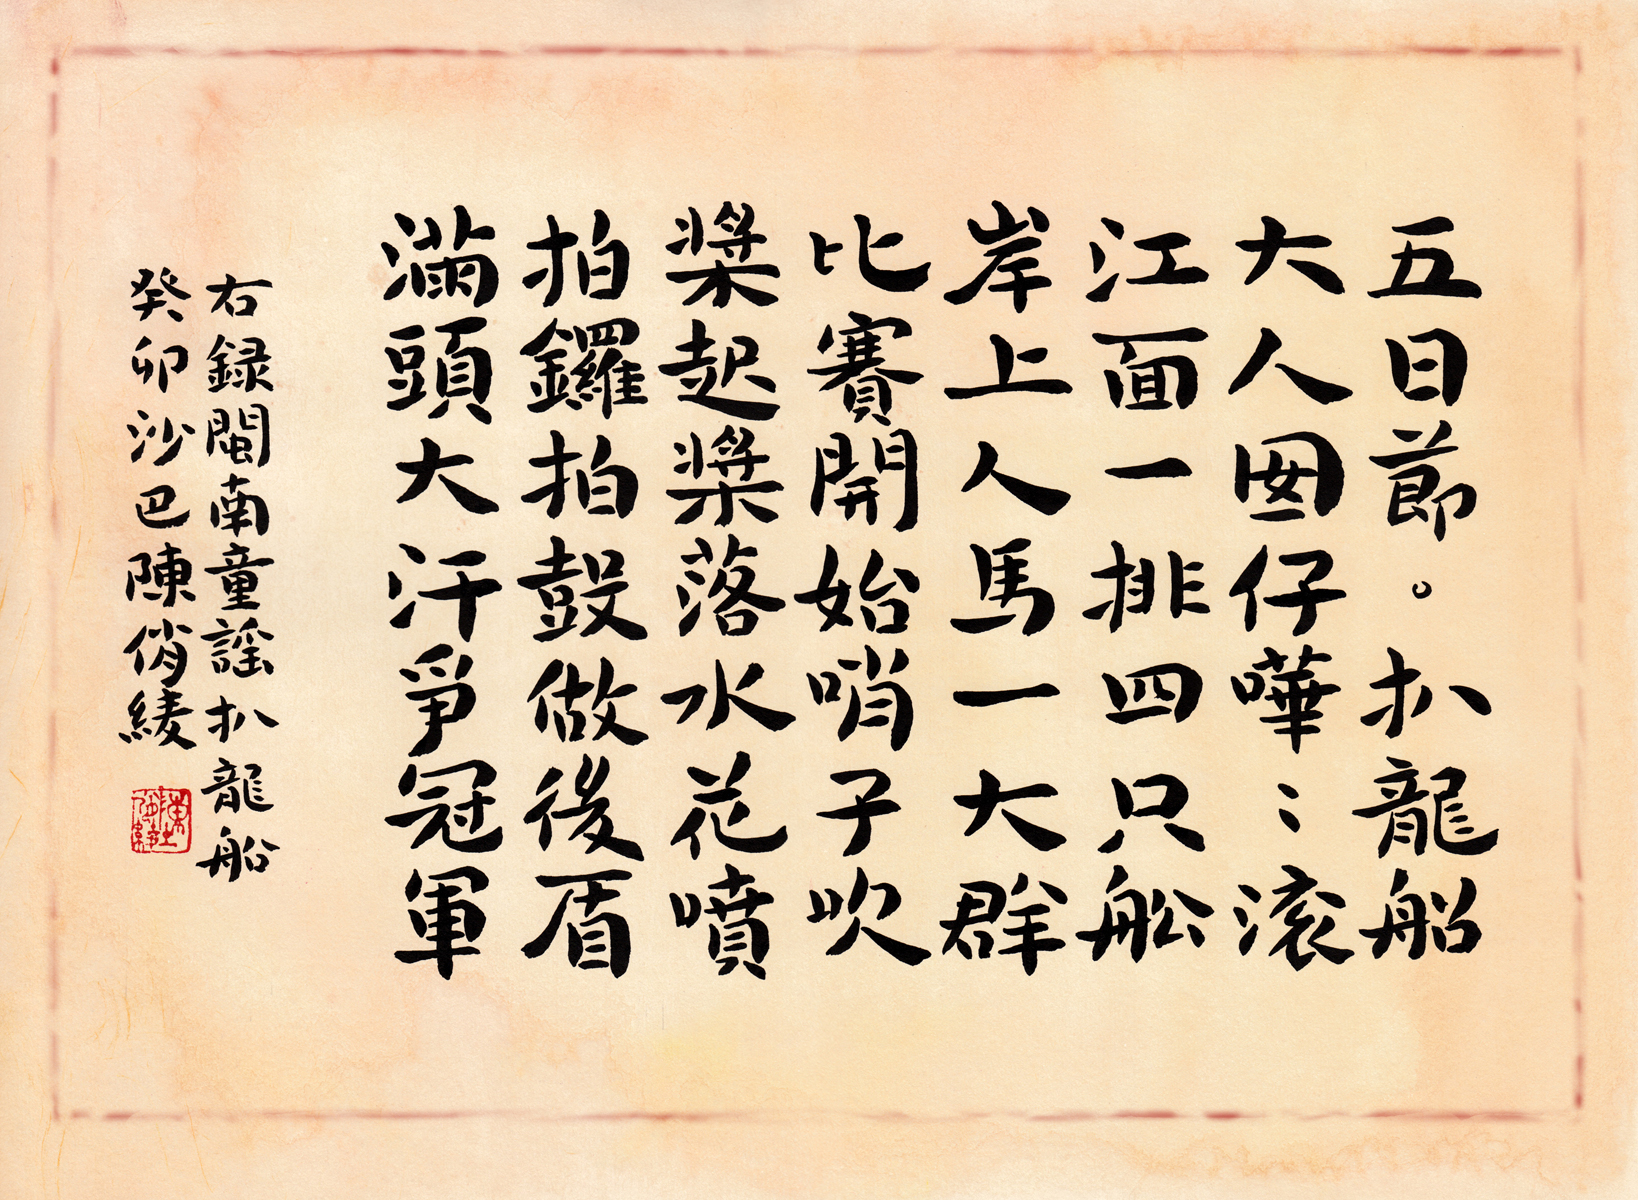 五日節。扒龍船
大人囡仔嘩〻滾
江面一排四只舩
岸上人馬一大群
比賽開始哨子吹
槳起槳落水花噴
拍鑼拍鼓做後盾
滿頭大汗爭冠軍
右録閩南童謡扒龍船
癸卯沙巴陳俏綾